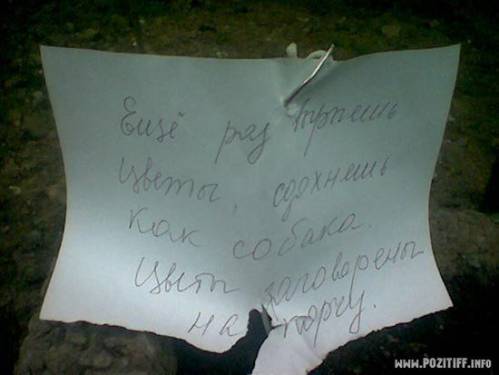 Ещё раз тронешь
цветы, сдохнешь
как собака.
Цветы заговорены
на порчу.
WWW.POZITIFF.INFO